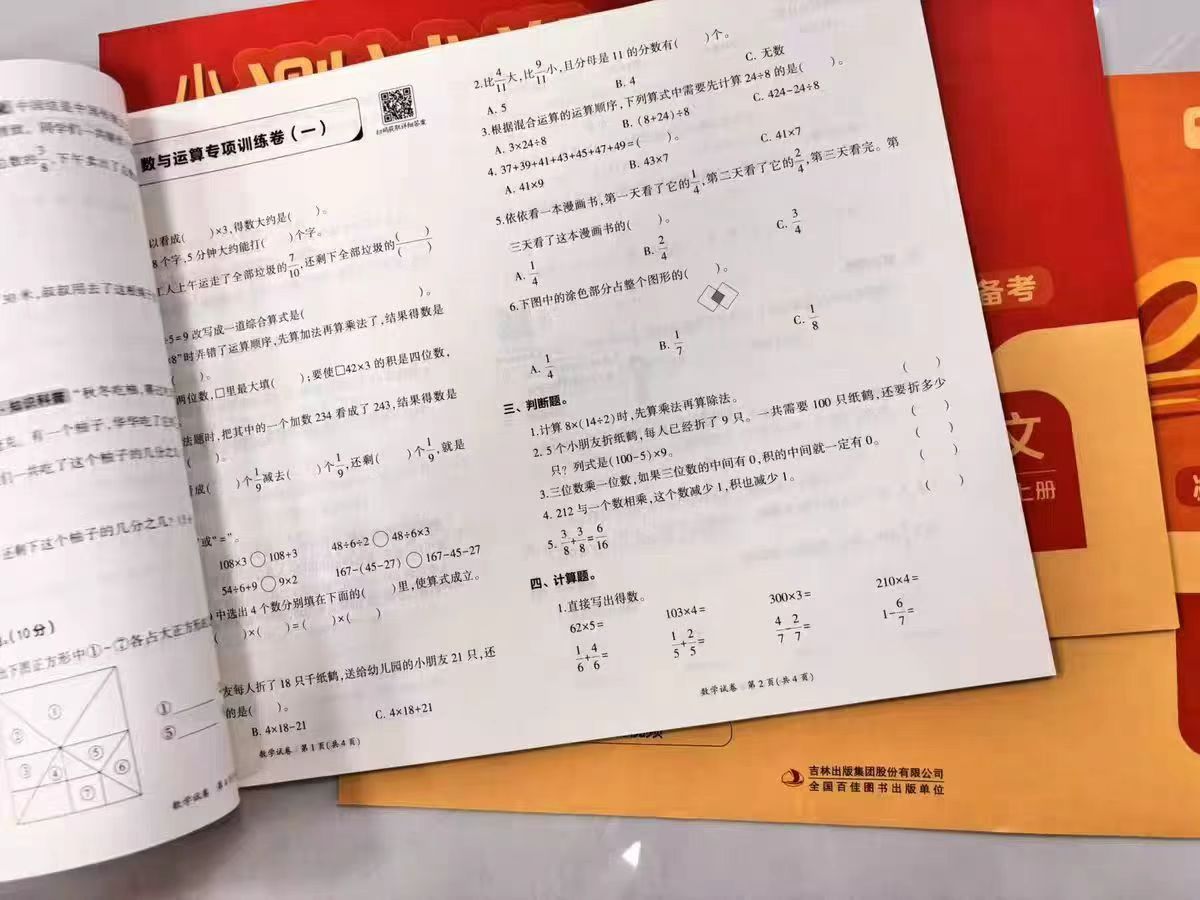 小
数与运算专项训练卷(一)
扫码获取详细答案
以看成(　)×3,得数大约是(　)。
8个字,5分钟大约能打(　)个字。
工人上午运走了全部垃圾的7/10,还剩下全部垃圾的(　)/(　)
÷5=9改写成一道综合算式是(　)。
×8”时弄错了运算顺序,先算加法再算乘法了,结果得数是
(　)。
两位数,□里最大填(　);要使□42×3的积是四位数,
法题时,把其中的一个加数234看成了243,结果得数是
(　)。
看成(　)个1/9减去(　)个1/9,还剩(　)个1/9,就是
或“=”。
108×3○108+3　48÷6÷2○48÷6×3
54÷6+9○9×2　167-(45-27)○167-45-27
中选出4个数分别填在下面的(　)里,使算式成立。
(　)×(　)=(　)×(　)
友每人折了18只千纸鹤,送给幼儿园的小朋友21只,还
的是(　)。
B. 4×18-21　C. 4×18+21
数学试卷 第1页(共4页)
2.比4/11大,比9/11小,且分母是11的分数有(　)个。
A. 5　B. 4　C. 无数
3.根据混合运算的运算顺序,下列算式中需要先计算24÷8的是(　)。
A. 3×24÷8　B. (8+24)÷8　C. 424-24÷8
4. 37+39+41+43+45+47+49=(　)。
A. 41×9　B. 43×7　C. 41×7
5.依依看一本漫画书,第一天看了它的1/4,第二天看了它的2/4,第三天看完。第
三天看了这本漫画书的(　)。
A. 1/4　B. 2/4　C. 3/4
6.下图中的涂色部分占整个图形的(　)。
A. 1/4　B. 1/7　C. 1/8
三、判断题。
1.计算8×(14÷2)时,先算乘法再算除法。　(　)
2. 5个小朋友折纸鹤,每人已经折了9只。一共需要100只纸鹤,还要折多少
只?列式是(100-5)×9。　(　)
3.三位数乘一位数,如果三位数的中间有0,积的中间就一定有0。　(　)
4. 212与一个数相乘,这个数减少1,积也减少1。　(　)
5. 3/8+3/8=6/16　(　)
四、计算题。
1.直接写出得数。
62×5=　103×4=　300×3=　210×4=
1/6+4/6=　1/5+2/5=　4/7-2/7=　1-6/7=
数学试卷 第2页(共4页)
3/8,下午卖出了
米,叔叔用去了这根绳子
知识科普 “秋冬吃柚,
有一个柚子,华华吃了它
们一共吃了这个柚子的几分之
还剩下这个柚子的几分之几?
(10分)
出下图正方形中①~⑦各占大正方形的
①
②
③
④
⑤
⑥
⑦
①
⑤
数学试卷 第
备考
文
上册
吉林出版集团股份有限公司
全国百佳图书出版单位